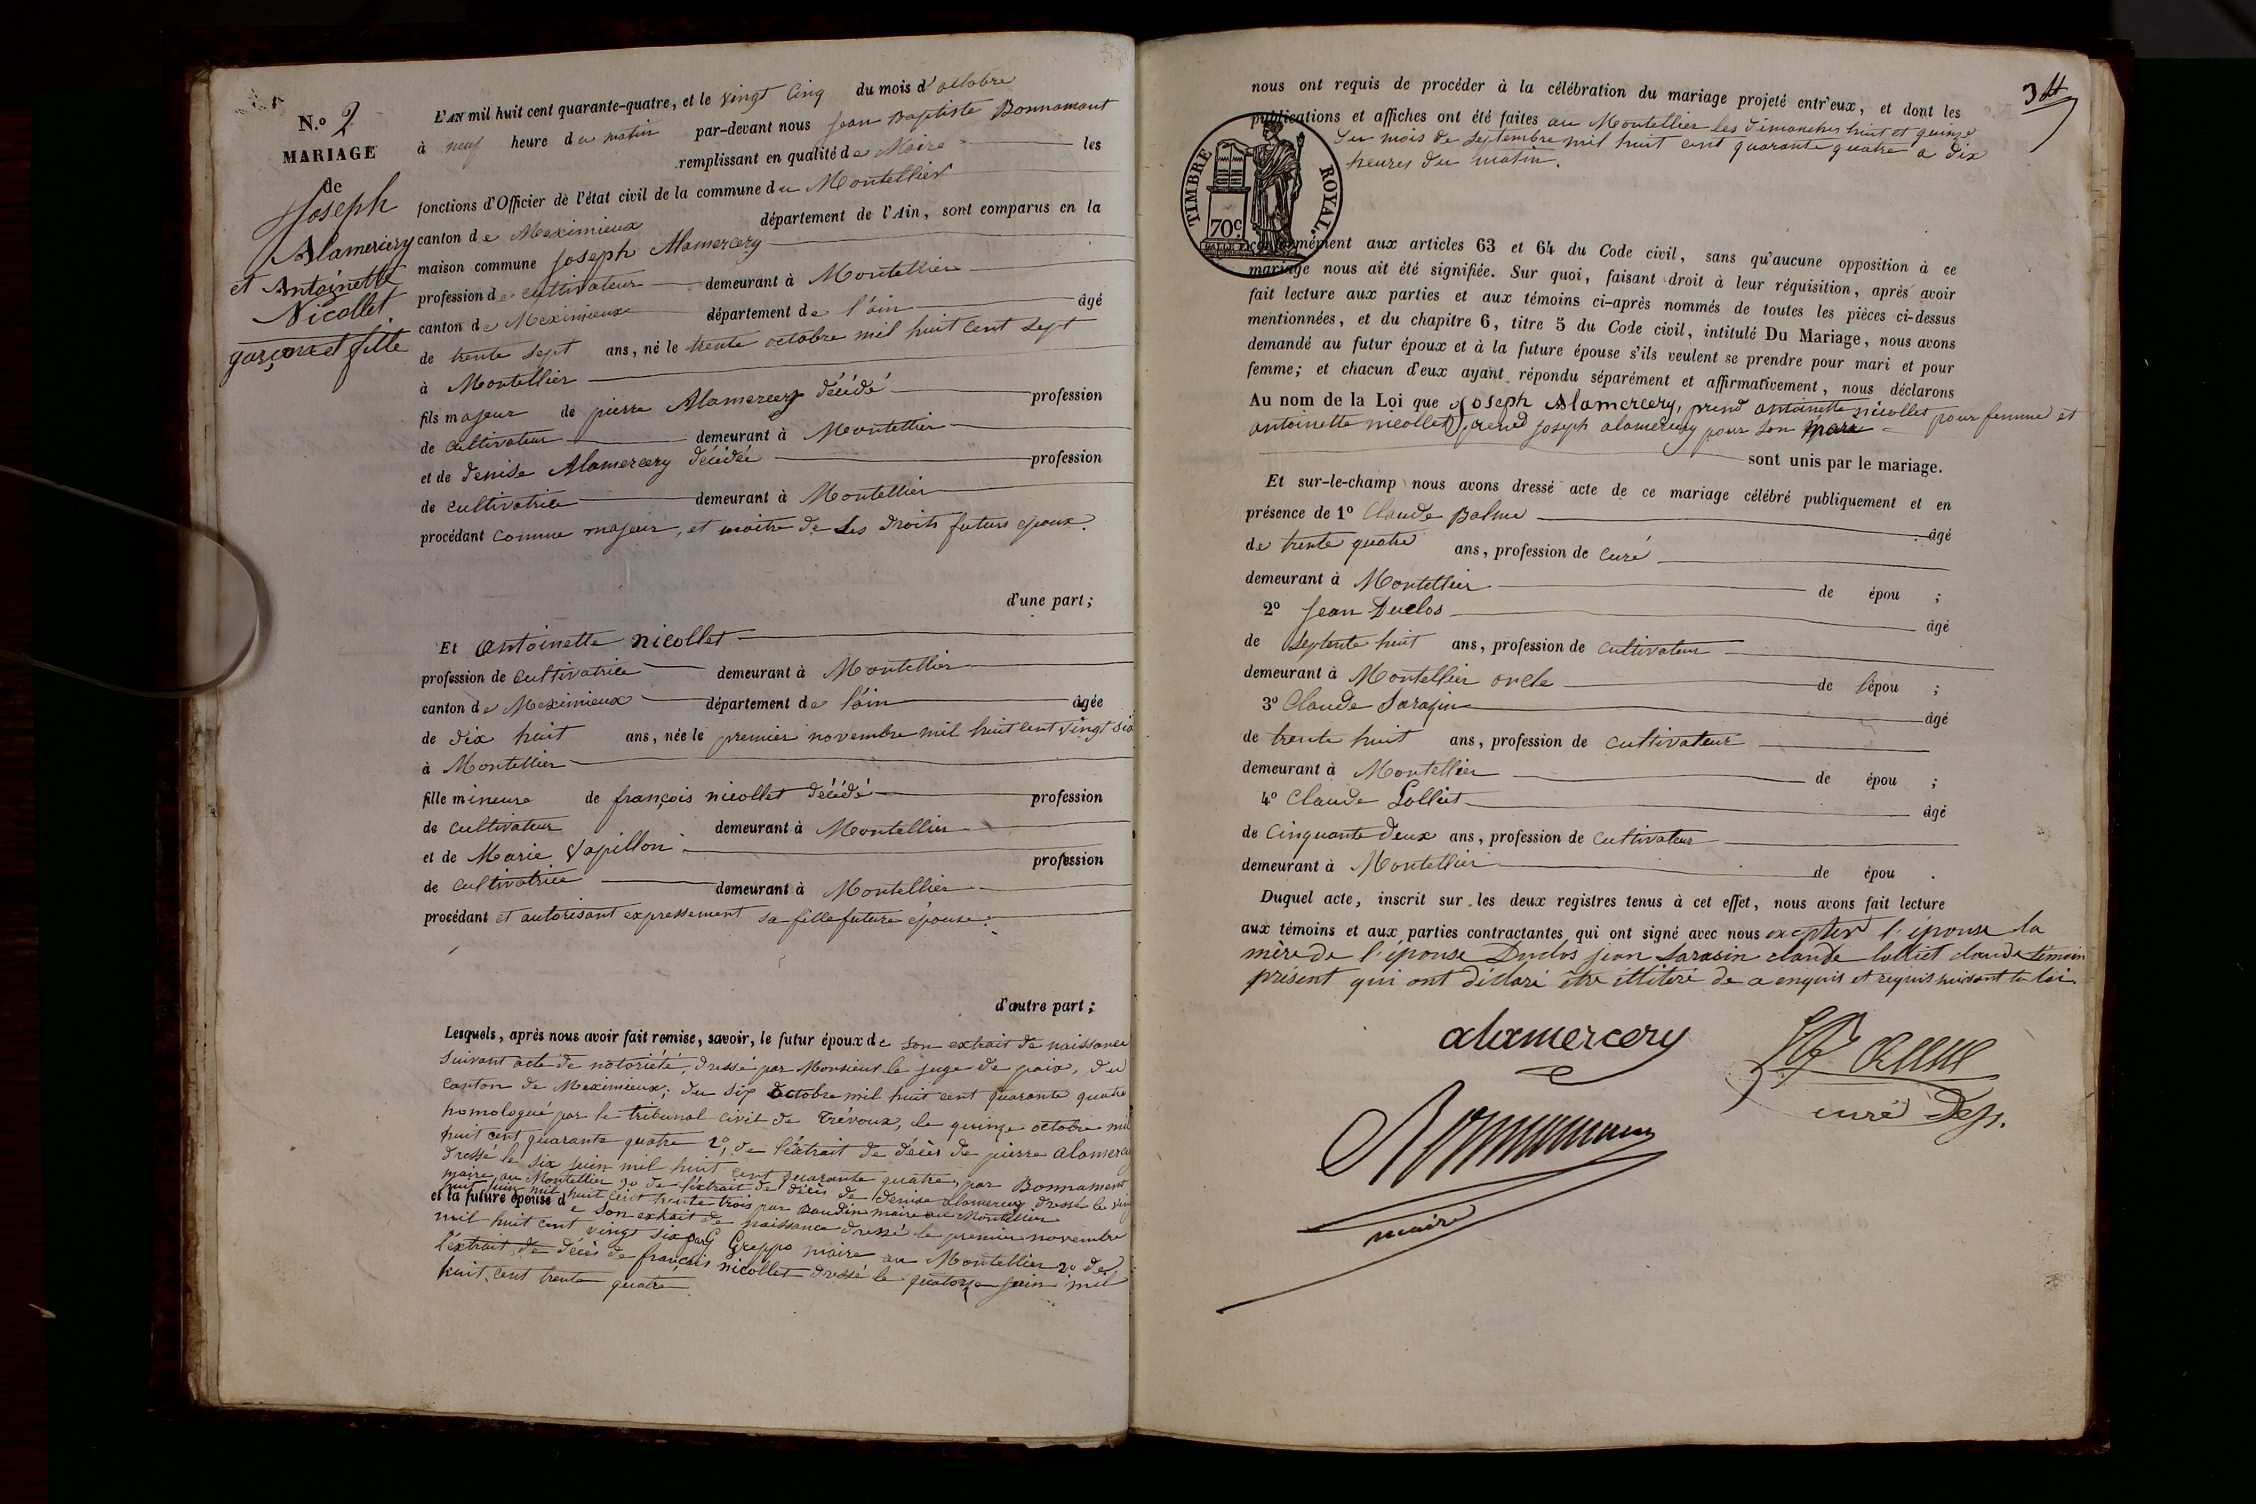 N.o 2
MARIAGE
de
Joseph
Alamercery
et Antoinette
Nicollet
garçon et fille
L'AN mil huit cent quarante-quatre, et le vingt cinq du mois d'octobre
à neuf heure du matin par-devant nous jean Baptiste Bonnamant
remplissant en qualité de Maire les
fonctions d'Officier de l'état civil de la commune du Montellier
canton de Meximieux département de l'Ain, sont comparus en la
maison commune joseph Alamercery
profession de cultivateur demeurant à Montellier
canton de Meximieux département de l'ain âgé
de trente sept ans, né le trente octobre mil huit cent sept
à Montellier
fils majeur de pierre Alamercery décédé profession
de cultivateur demeurant à Montellier
et de denise Alamercery décédée profession
de cultivatrice demeurant à Montellier
procédant comme majeur, et maitre de ses droits futurs epoux.
d'une part;
Et antoinette nicollet
profession de cultivatrice demeurant à Montellier
canton de Meximieux département de l'ain âgée
de dix huit ans, née le premier novembre mil huit cent vingt six
à Montellier
fille mineure de françois nicollet décédé profession
de cultivateur demeurant à Montellier
et de Marie Vapillon profession
de cultivatrice demeurant à Montellier
procédant et autorisant expressement sa fille future épouse.
d'autre part;
Lesquels, après nous avoir fait remise, savoir, le futur époux de son extrait de naissance
suivant acte de notoriété, dressé par Monsieur le juge de paix, du
canton de Meximieux; du six octobre mil huit cent quarante quatre
homologué par le tribunal civil de Trévoux, le quinze octobre mil
huit cent quarante quatre 2º, de l'extrait de décès de pierre alamercery
dressé le six juin mil huit cent quarante quatre, par Bonnamant
maire au Montellier 3º de l'extrait de décès de denise alamercery dressé le
huit juin mil huit cent trente trois par Baudin maire au Montellier
et la future épouse de son extrait de naissance dressé le premier novembre
mil huit cent vingt six par G Greppo maire au Montellier 2º de
l'extrait de décès de françois nicollet dressé le quatorze juin mil
huit cent trente quatre
34
nous ont requis de procéder à la célébration du mariage projeté entr'eux, et dont les
publications et affiches ont été faites au Montellier les dimanches huit et quinze
du mois de septembre mil huit cent quarante quatre a dix
heures du matin.
TIMBRE ROYAL.
70c.
conformément aux articles 63 et 64 du Code civil, sans qu'aucune opposition à ce
mariage nous ait été signifiée. Sur quoi, faisant droit à leur réquisition, après avoir
fait lecture aux parties et aux témoins ci-après nommés de toutes les pièces ci-dessus
mentionnées, et du chapitre 6, titre 5 du Code civil, intitulé Du Mariage, nous avons
demandé au futur époux et à la future épouse s'ils veulent se prendre pour mari et pour
femme; et chacun d'eux ayant répondu séparément et affirmativement, nous déclarons
Au nom de la Loi que Joseph Alamercery, prend antoinette nicollet pour femme et
antoinette nicollet prend joseph alamercery pour son mari
sont unis par le mariage.
Et sur-le-champ nous avons dressé acte de ce mariage célébré publiquement et en
présence de 1º Claude Balme âgé
de trente quatre ans, profession de curé
demeurant à Montellier de épou ;
2º Jean Duclos âgé
de septente huit ans, profession de cultivateur
demeurant à Montellier oncle de l'épou ;
3º Claude Sarasin âgé
de trente huit ans, profession de cultivateur
demeurant à Montellier de épou ;
4º Claude Lolliet âgé
de cinquante deux ans, profession de cultivateur
demeurant à Montellier de épou .
Duquel acte, inscrit sur les deux registres tenus à cet effet, nous avons fait lecture
aux témoins et aux parties contractantes qui ont signé avec nous excepter l'épouse la
mère de l'épouse Duclos jean Sarasin claude lolliet claude témoin
présent qui ont déclaré être illiteré de a enquis et requis suivant la loi
alamercery
curé
Bonnamant
maire